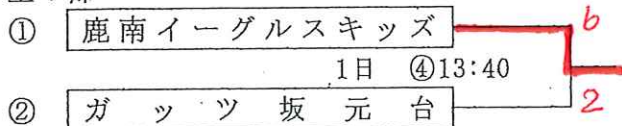 ① 鹿南イーグルスキッズ 6
1日 ④13:40
② ガッツ坂元台 2